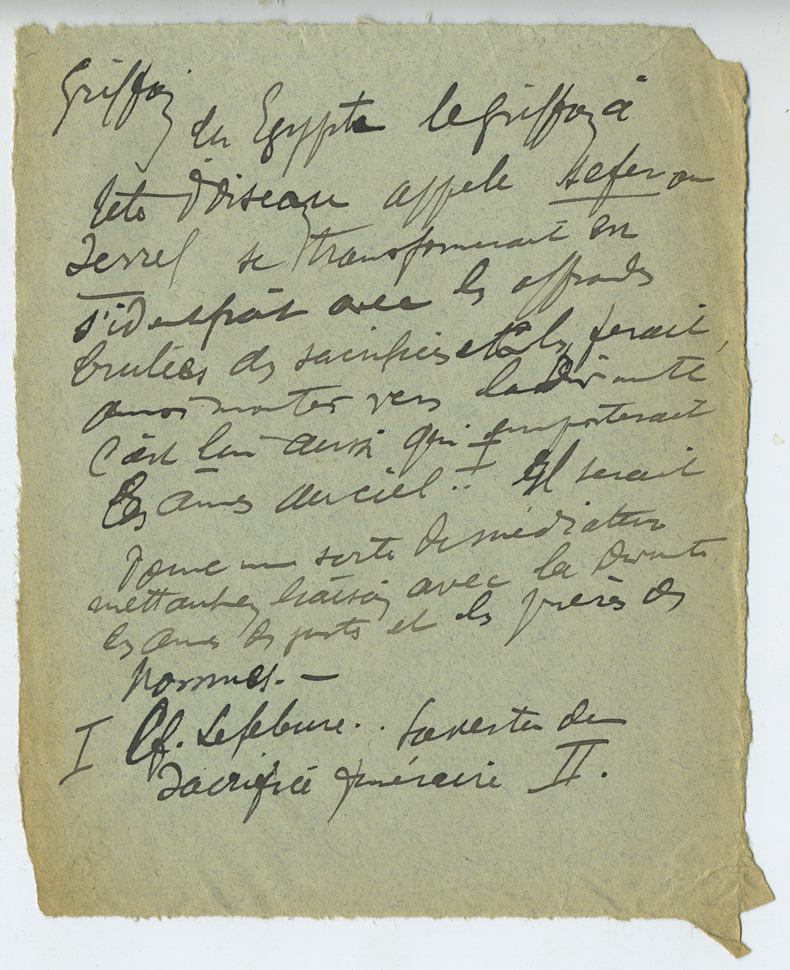 Griffon
en Egypte le griffon à
tête d'oiseau appelé sefer ou
serref se transformerait en
s'identifiait avec les offrandes
brulées des sacrifices et les ferait
ainsi monter vers la Divinité
C'est lui aussi qui emporterait I
les âmes au ciel. Il serait
donc une sorte de médiateur
mettant en liaison avec la Divinité
les âmes des justes et les prières des
hommes. —
I Cf. Lefebure.. du
sacrifice funéraire II.